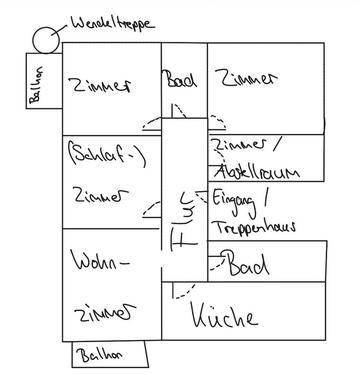 Wendeltreppe
Balkon
Zimmer
Bad
Zimmer
(Schlaf-)
Zimmer
Zimmer/
Abstellraum
Flur
Eingang/
Treppenhaus
Wohn-
zimmer
Bad
Küche
Balkon